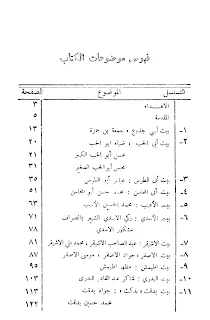 فهرس موضوعات الكتاب
التسلسل الموضوع الصفحة
الاهداء ٣
المقدمة ٥
١- بيت أبي جذوع : جمعة بن حمزة ١٣
٢- بيت أبي الحب : ضياء ابو الحب ٢٠
محسن أبو الحب الكبير ٢١
محسن أبو الحب الصغير ٣١
٣- بيت أبي الطرس : عباس أبو الطوس ٣٥
٤- بيت أبي المحاسن : محمد حسن أبو المحاسن ٥١
٥- بيت الأديب : محمد الحسين الأديب ٦٣
٦- بيت الأسدي : زكي الأسدي الشهير بالصراف ٧١
مشكور الأسدي ٧٨
٧- بيت الاشيقر : عبد الصاحب الاشيقر ، محمد علي الاشيقر ٨١
٨- بيت الأصفر : جواد الاصفر ، موسى الاصفر ٨٧
٩- بيت اطيمش : مظهر اطيمش ٩٥
١٠- بيت البدري : شاكر عبد القادر البدري ١٠٣
١١- بيت بدقت : جواد بدقت ١١٣
محمد حسين بدقت ١٢٢